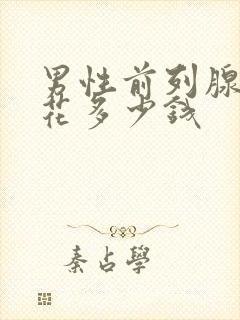 男性前列腺
花多少钱
秦占學